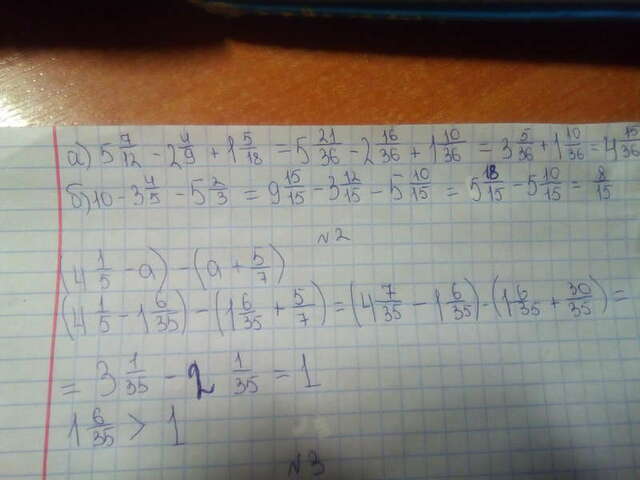 а) 5 7/12 - 2 4/9 + 1 5/18 = 5 21/36 - 2 16/36 + 1 10/36 = 3 5/36 + 1 10/36 = 4 15/36
б) 10 - 3 4/5 - 5 2/3 = 9 15/15 - 3 12/15 - 5 10/15 = 5 18/15 - 5 10/15 = 8/15
№2
(4 1/5 - a) - (a + 5/7)
(4 1/5 - 1 6/35) - (1 6/35 + 5/7) = (4 7/35 - 1 6/35) - (1 6/35 + 30/35) =
= 3 1/35 - 2 1/35 = 1
1 6/35 > 1
№3